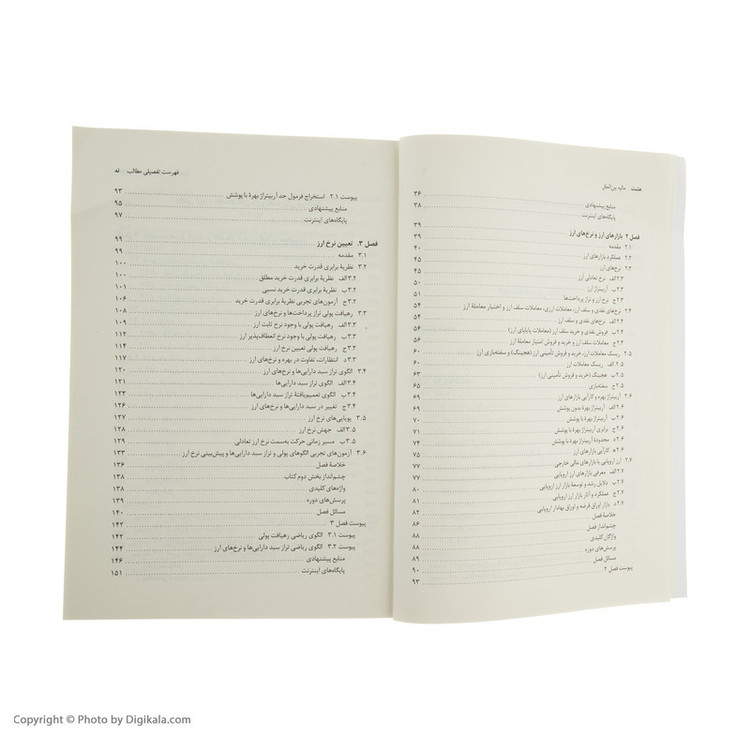 هشت مالیه بین‌الملل
۳۶
منابع پیشنهادی ۳۸
پایگاه‌های اینترنت
فصل ۲ بازارهای ارز و نرخ‌های ارز ۳۹
۲.۱ مقدمه ۳۹
۲.۲ عملکرد بازارهای ارز ۴۰
۲.۳ نرخ‌های ارز ۴۵
۲.۳الف نرخ تعادلی ارز ۴۵
۲.۳ب آربیتراژ ارز ۵۰
۲.۳ج نرخ ارز و تراز پرداخت‌ها ۵۱
۲.۴ نرخ‌های نقدی و سلف ارز، معاملات ارزی، معاملات سلف ارز و اختیار معاملهٔ ارز ۵۴
۲.۴الف نرخ‌های نقدی و سلف ارز ۵۴
۲.۴ب فروش نقدی و خرید سلف ارز (معاملات پایاپای ارز) ۵۶
۲.۴ج معاملات سلف ارز و خرید و فروش امتیاز معاملهٔ ارز ۵۶
۲.۵ ریسک معاملات ارز، خرید و فروش تأمینی ارز (هجینگ) و سفته‌بازی ارز ۶۰
۲.۵الف ریسک معاملات ارز ۶۰
۲.۵ب هجینگ (خرید و فروش تأمینی ارز) ۶۳
۲.۵ج سفته‌بازی ۶۵
۲.۶ آربیتراژ بهره و کارآیی بازارهای ارز ۶۹
۲.۶الف آربیتراژ بهره بدون پوشش ۶۹
۲.۶ب آربیتراژ بهرهٔ با پوشش ۷۰
۲.۶ج برابری آربیتراژ بهرهٔ با پوشش ۷۱
۲.۶د محدودهٔ آربیتراژ بهرهٔ با پوشش ۷۴
۲.۶ه کارآیی بازارهای ارز ۷۵
۲.۷ ارز اروپایی یا بازارهای مالی خارجی ۷۷
۲.۷الف معرفی بازارهای ارز اروپایی ۷۷
۲.۷ب دلایل رشد و توسعهٔ بازار ارز اروپایی
۲.۷ج عملکرد و آثار بازار ارز اروپایی ۸۱
۲.۷د بازار اوراق قرضه و اوراق بهادار اروپایی ۸۲
خلاصهٔ فصل
چشم‌انداز فصل ۸۶
واژگان کلیدی
پرسش‌های دوره ۸۸
مسائل فصل ۸۸
پیوست فصل ۲ ۹۰
۹۳
فهرست تفصیلی مطالب نه
پیوست ۲.۱ استخراج فرمول حد آربیتراژ بهرهٔ با پوشش ۹۳
منابع پیشنهادی ۹۵
پایگاه‌های اینترنت ۹۷
فصل ۳. تعیین نرخ ارز ۹۹
۳.۱ مقدمه ۹۹
۳.۲ نظریهٔ برابری قدرت خرید ۱۰۰
۳.۲الف نظریهٔ برابری قدرت خرید مطلق ۱۰۰
۳.۲ب نظریهٔ برابری قدرت خرید نسبی ۱۰۲
۳.۲ج آزمون‌های تجربی نظریهٔ برابری قدرت خرید ۱۰۶
۳.۳ رهیافت پولی تراز پرداخت‌ها و نرخ‌های ارز ۱۰۸
۳.۳الف رهیافت پولی با وجود نرخ ثابت ارز ۱۰۹
۳.۳ب رهیافت پولی با وجود نرخ انعطاف‌پذیر ارز ۱۱۲
۳.۳ج رهیافت پولی تعیین نرخ ارز ۱۱۴
۳.۳د انتظارات، تفاوت در بهره و نرخ‌های ارز ۱۱۷
۳.۴ الگوی تراز سبد دارایی‌ها و نرخ‌های ارز ۱۲۰
۳.۴الف الگوی تراز سبد دارایی‌ها ۱۲۱
۳.۴ب الگوی تعمیم‌یافتهٔ تراز سبد دارایی‌ها ۱۲۳
۳.۴ج تغییر در سبد دارایی‌ها و نرخ‌های ارز ۱۲۶
۳.۵ پویایی‌های نرخ ارز ۱۲۷
۳.۵الف جهش نرخ ارز ۱۲۸
۳.۵ب مسیر زمانی حرکت به‌سمت نرخ ارز تعادلی ۱۲۹
۳.۶ آزمون‌های تجربی الگوهای پولی و تراز سبد دارایی‌ها و پیش‌بینی نرخ ارز ۱۳۳
خلاصهٔ فصل ۱۳۶
چشم‌انداز بخش دوم کتاب ۱۳۸
واژه‌های کلیدی ۱۳۸
پرسش‌های دوره ۱۳۹
مسائل فصل ۱۴۰
پیوست فصل ۳ ۱۴۲
پیوست ۳.۱ الگوی ریاضی رهیافت پولی ۱۴۲
پیوست ۳.۲ الگوی ریاضی تراز سبد دارایی‌ها و نرخ‌های ارز ۱۴۴
منابع پیشنهادی ۱۴۶
پایگاه‌های اینترنت ۱۵۱
Copyright © Photo by Digikala.com